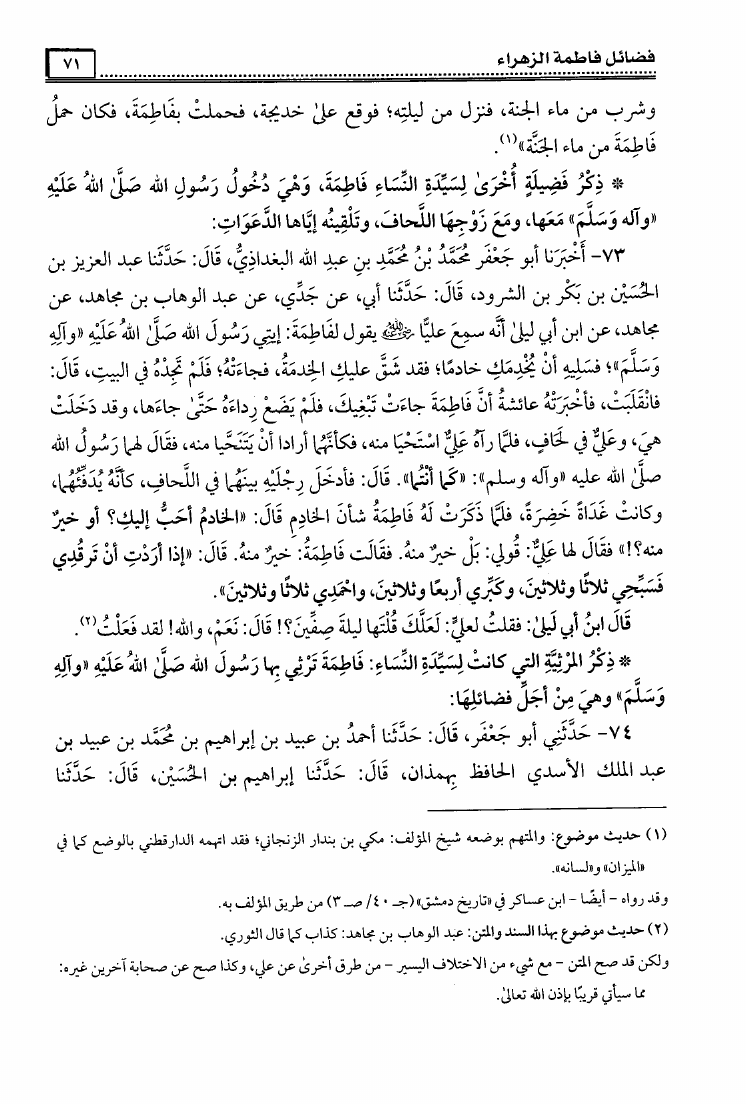 فضائل فاطمة الزهراء
٧١
وشرب من ماء الجنة، فنزل من ليلتِه؛ فوقع علىٰ خديجة، فحملتْ بفَاطِمَةَ، فكان حملُ
فَاطِمَةَ من ماء الجَنَّة»(١).
* ذِكْرُ فَضِيلَةٍ أُخْرَىٰ لِسَيِّدَةِ النِّسَاءِ فَاطِمَةَ، وَهْيَ دُخُولُ رَسُولِ الله صَلَّىٰ اللهُ عَلَيْهِ
«وآله وَسَلَّمَ» مَعَها، ومَعَ زَوْجِهَا اللَّحافَ، وتَلْقِينُه إيَّاها الدَّعَوَاتِ:
٧٣- أَخْبَرَنا أبو جَعْفَر مُحَمَّدُ بْنُ مُحَمَّدِ بنِ عبدِ الله البغداذِيُّ، قَالَ: حَدَّثَنا عبد العزيز بن
الحُسَيْن بن بَكْر بن الشرود، قَالَ: حَدَّثَنا أبي، عن جَدِّي، عن عبد الوهاب بن مجاهد، عن
مجاهد، عن ابن أبي ليلىٰ أنَّه سمِعَ عليًّا ﵁ يقول لفَاطِمَةَ: إيتِي رَسُولَ الله صَلَّىٰ اللهُ عَلَيْهِ «وآلِهِ
وَسَلَّمَ»؛ فسَلِيهِ أنْ يُخْدِمَكِ خادمًا؛ فقد شَقَّ عليكِ الخِدمَةُ، فجاءَتْهُ؛ فلَمْ تَجِدْهُ في البيتِ، قَالَ:
فانْقَلَبَتْ، فأخْبَرَتْهُ عائشةُ أنَّ فَاطمَةَ جاءَتْ تَبْغِيكَ، فلَمْ يَضَعْ رِداءَهُ حتَّىٰ جاءَها، وقد دَخَلَتْ
هيَ، وعَلِيٌّ في لحَافٍ، فلمَّا رآهُ عَلِيٌّ اسْتَحْيَا منه، فكأنَّهُما أرادا أنْ يَتَنَحَّيا منه، فقَالَ لهما رَسُولُ الله
صلَّىٰ الله عليه «وآله وسلم»: «كَما أنْتُما». قَالَ: فأدخَلَ رِجْلَيْهِ بينَهُما في اللَّحافِ، كأنَّهُ يُدَفِّئُهُما،
وكانتْ غَدَاةً خَضِرَةً، فلمَّا ذَكَرَتْ لَهُ فَاطِمَةُ شأنَ الخادِمِ قَالَ: «الخادمُ أحَبُّ إليكِ؟ أو خيرٌ
منه؟!» فقَالَ لها عَلِيٌّ: قُولي: بَلْ خيرٌ منهُ. فقَالَت فَاطِمَةُ: خيرٌ منهُ. قَالَ: «إذا أرَدْتِ أنْ تَرقُدِي
فَسَبِّحِي ثلاثًا وثلاثينَ، وكَبِّري أربعًا وثلاثينَ، واحْمَدِي ثلاثًا وثلاثينَ».
قَالَ ابنُ أبي لَيلىٰ: فقلتُ لعليٍّ: لَعَلَّكَ قُلْتَها ليلةَ صِفِّينَ؟! قَالَ: نَعَمْ، والله! لقد فعَلْتُ(٢).
* ذِكْرُ المَرْثِيَّةِ التي كانتْ لِسَيِّدَةِ النِّسَاءِ: فَاطِمَةَ تَرْثِي بِها رَسُولَ الله صَلَّىٰ اللهُ عَلَيْهِ «وآلِهِ
وَسَلَّمَ» وهيَ مِنْ أجَلِّ فضائلِهَا:
٧٤- حَدَّثَنِي أبو جَعْفَر، قَالَ: حَدَّثَنا أحمدُ بن عبيد بن إبراهيم بن مُحَمَّد بن عبيد بن
عبد الملك الأسدي الحافظ بِهمذان، قَالَ: حَدَّثَنا إبراهيم بن الحُسَيْن، قَالَ: حَدَّثَنا
(١) حديث موضوع: والمتهم بوضعه شيخ المؤلف: مكي بن بندار الزنجاني؛ فقد اتهمه الدارقطني بالوضع كما في
«الميزان» و«لسانه».
وقد رواه - أيضًا - ابن عساكر في «تاريخ دمشق» (جـ ٤٠/ صـ ٣) من طريق المؤلف به.
(٢) حديث موضوع بهذا السند والمتن: عبد الوهاب بن مجاهد: كذاب كما قال الثوري.
ولكن قد صح المتن - مع شيء من الاختلاف اليسير - من طرق أخرىٰ عن علي، وكذا صح عن صحابة آخرين غيره:
مما سيأتي قريبًا بإذن الله تعالىٰ.